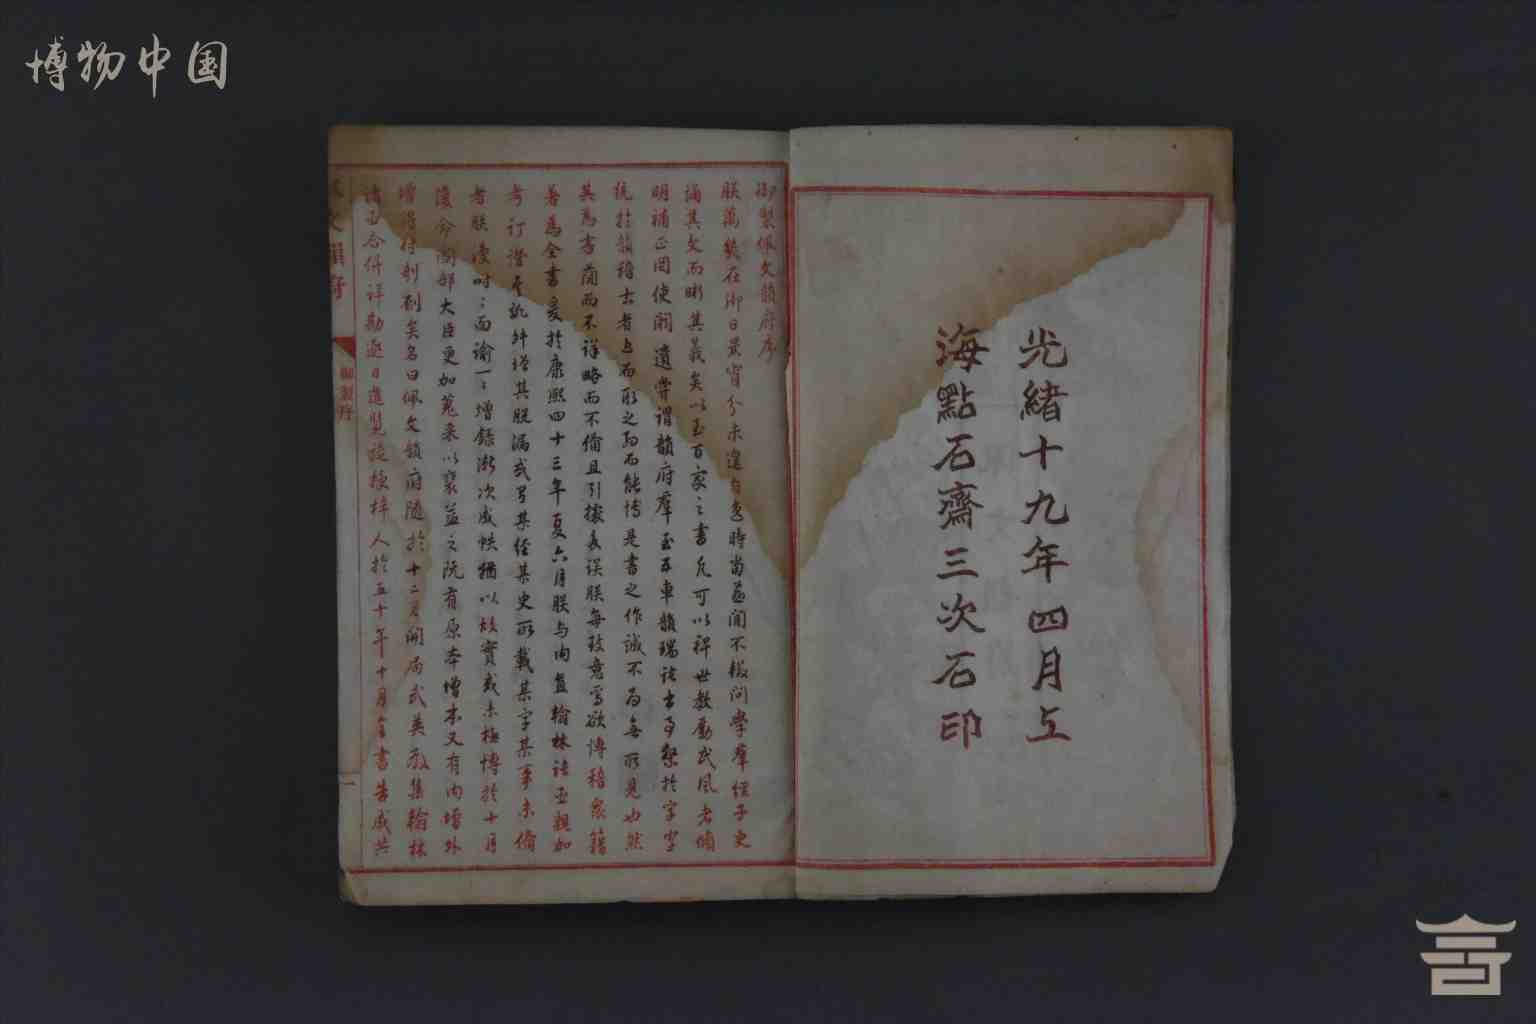 博物中国
光緒十九年四月上
海點石齋三次石印
御製佩文韻府序
朕萬幾在御日昃宵分未遑自逸時當燕閒不輟問學群經子史
誦其文而晰其義矣以至百家之書凡可以裨世教勵民風者傾
明補正罔使闕遺嘗謂韻府羣玉五車韻瑞諸書事繫於字字
統於韻稽古者近而取之約而能博是書之作誠不為無所見也然
其為書簡而不詳略而不備且引據多誤朕每致意焉欲博稽衆籍
著為全書爰於康熙四十三年夏六月朕與內直翰林諸臣親加
考訂證其訛舛增其脫漏或有某經某史所載某字某事未備
者朕復時時面諭一一增錄漸次成帙猶以故實或未極博於十月
復命閣部大臣更加蒐采以裒益之既有原本增本又有內增外
增爰付剞劂矣名曰佩文韻府隨於十二月開局武英殿集翰林
諸臣合併詳勘逐日進覽旋授梓人於五十年十月全書告成共
文韻府
御製序
一